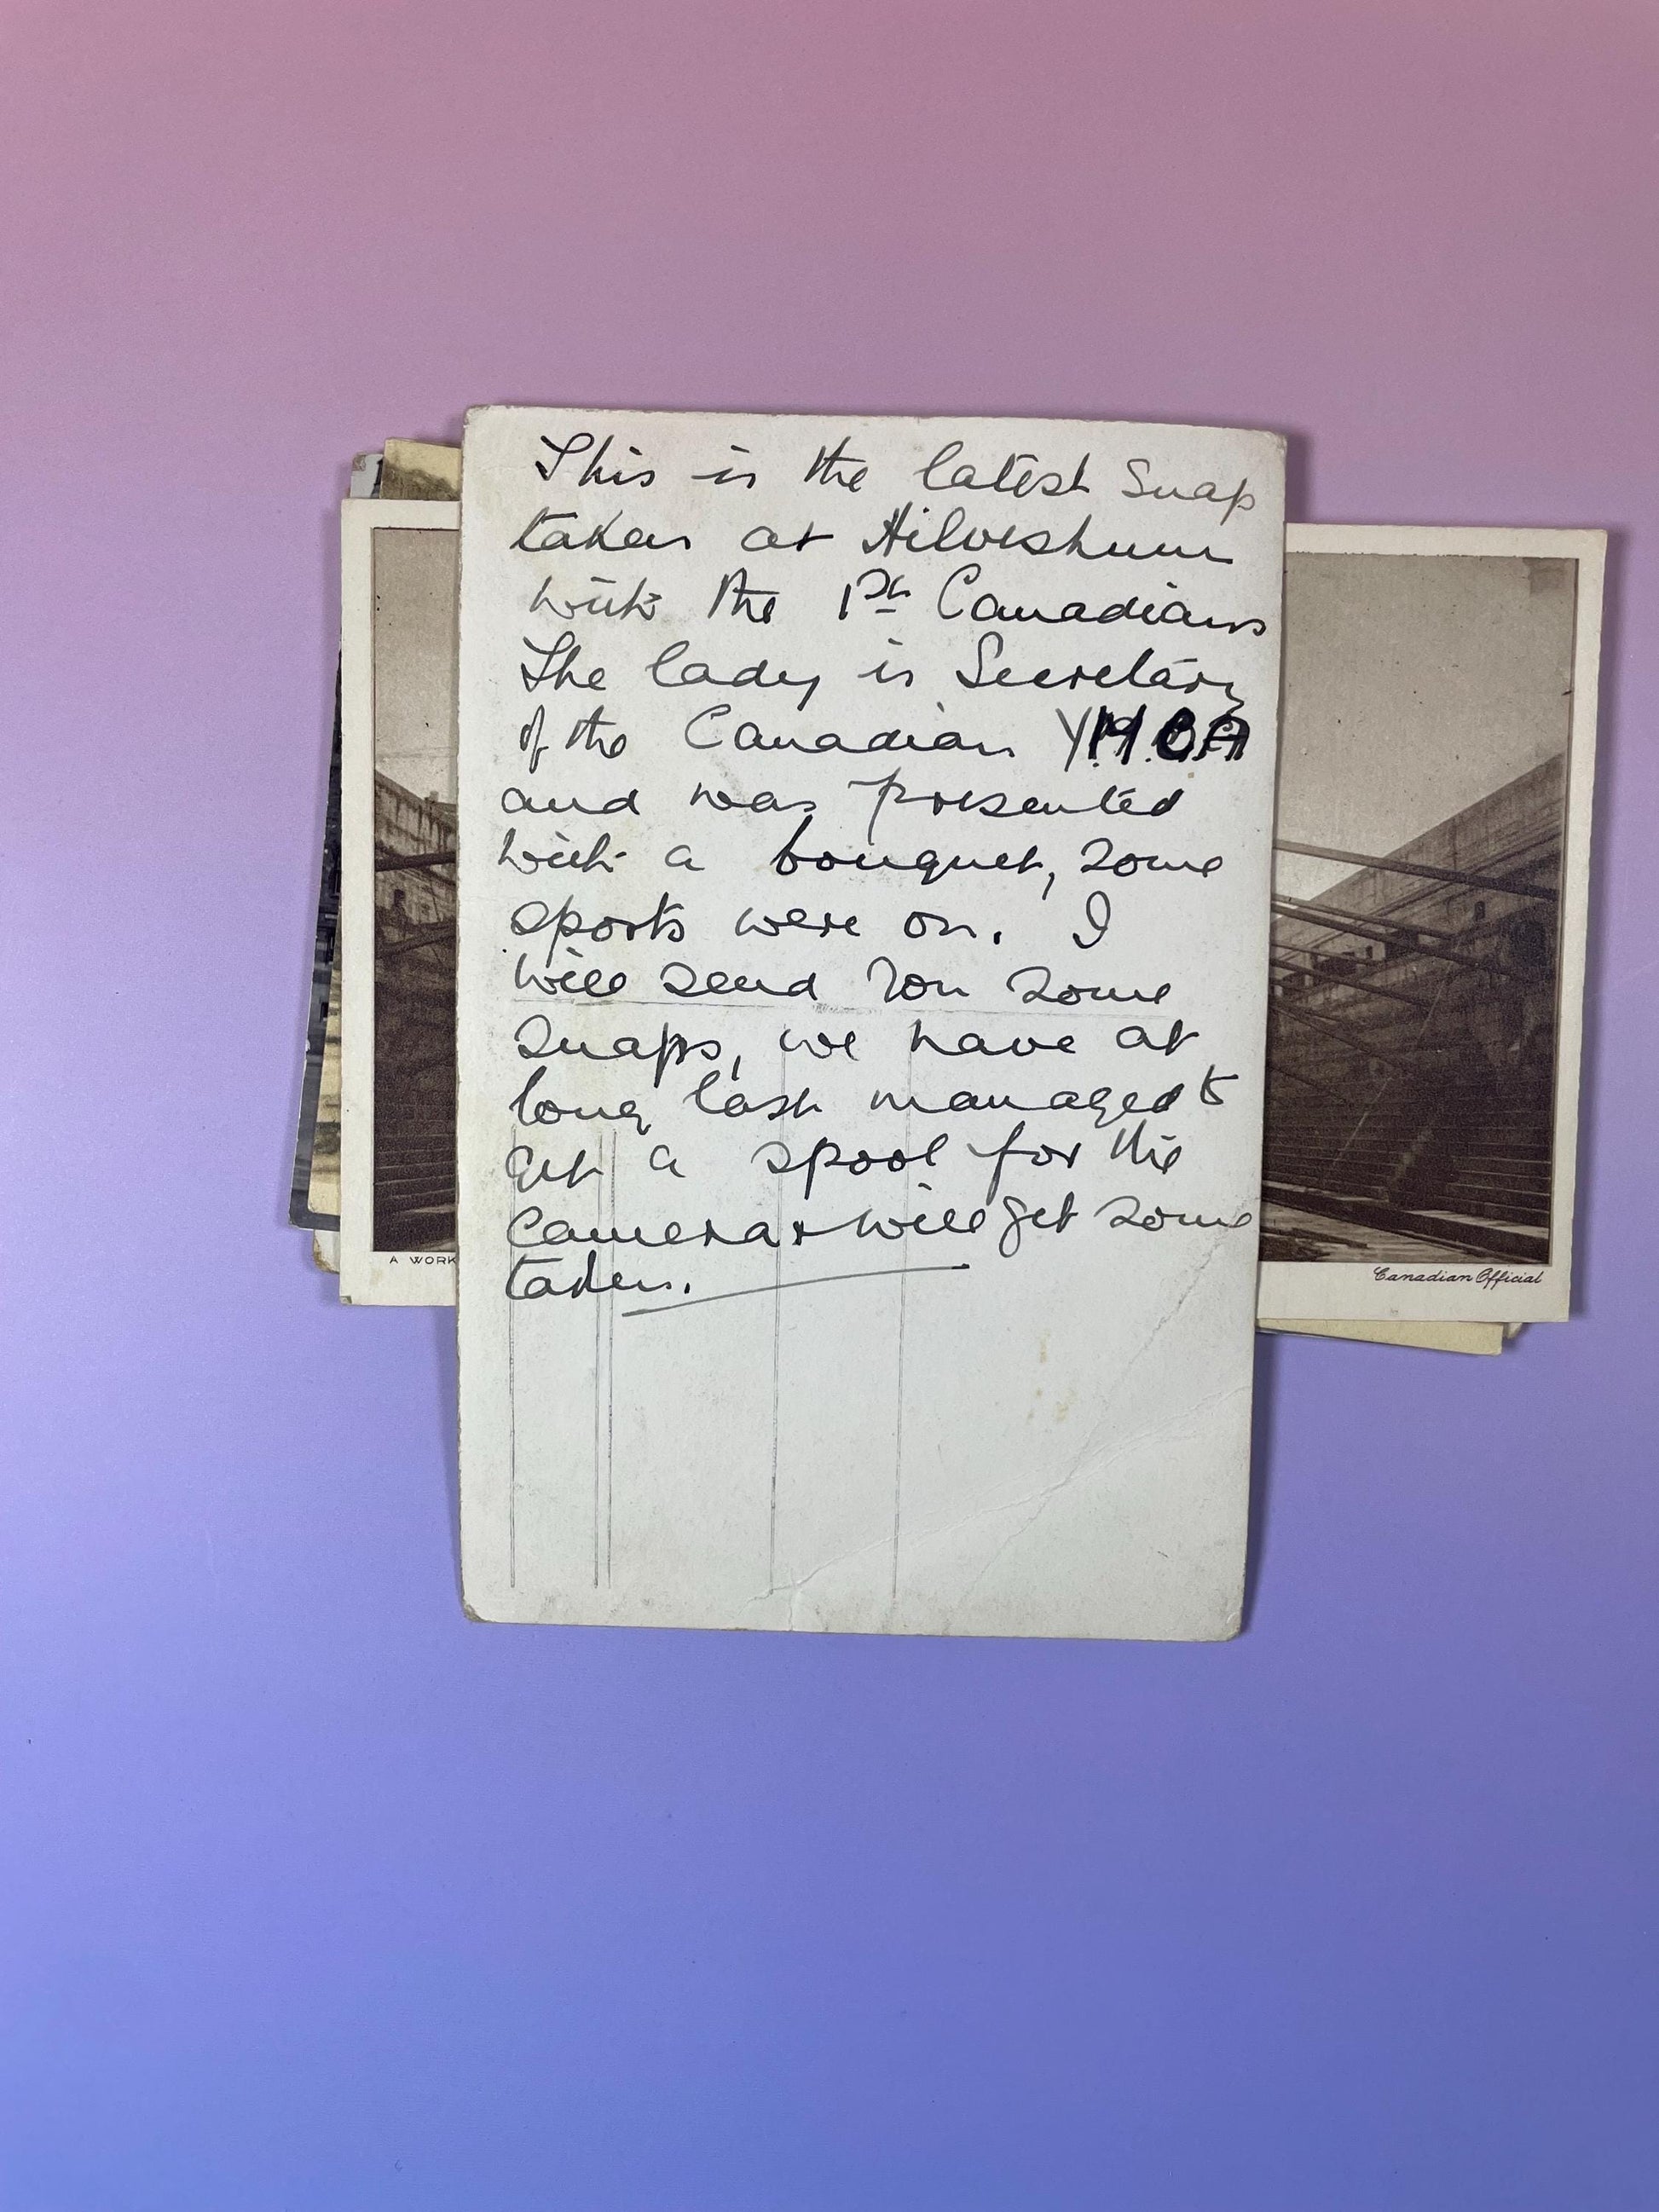 This is the latest Snap
taken at Hilvershum
with the 1st Canadians
The lady is Secretary
of the Canadian Y.M.C.A
and was presented
with a bouquet, some
sports were on. I
will send you some
snaps, we have at
long last managed to
get a spool for the
camera & will get some
taken.
A WORK
Canadian Official